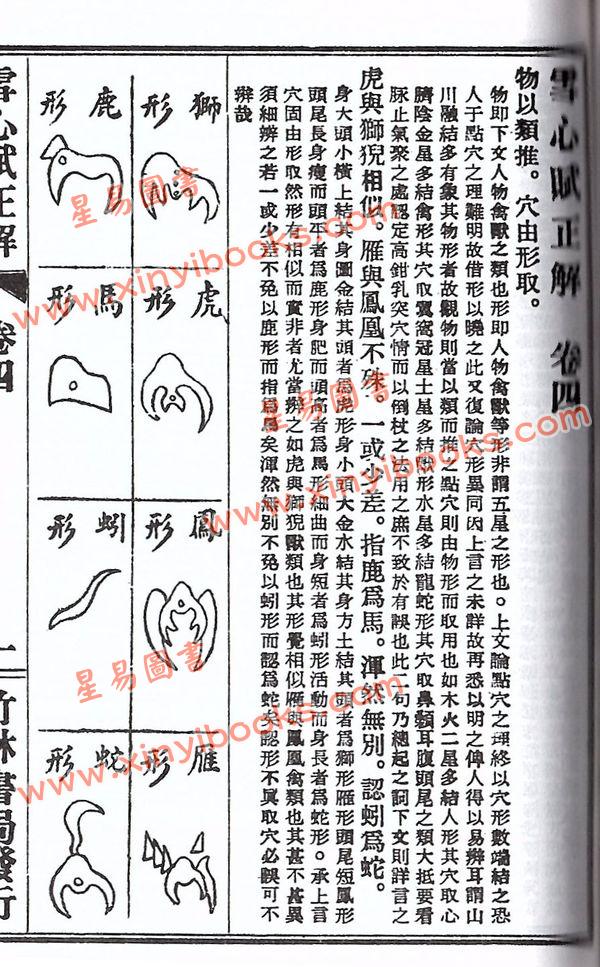 雪心賦正解 卷四
物以類推。穴由形取。
物即下文人物禽獸之類也形即人物禽獸等形非謂五星之形也。上文論點穴之理終以穴形數端結之恐
人于點穴之理難明故借形以曉之此又復論穴形異同因上言之未詳故再悉以明之俾人得以易辨耳謂山
川融結多有象其物形者故觀物則當以類而推之點穴則由物形而取用也如木火二星多結人形其穴取心
臍陰金星多結禽形其穴取翼窩冠星土星多結獸形水星多結龍蛇形其穴取鼻顙耳腹頭尾之類大抵要看
脉止氣聚之處認定高鉗乳突穴情而以倒杖之法用之庶不致於有誤也此二句乃總起之詞下文則詳言之
虎與獅猊相似。雁與鳳凰不殊。一或少差。指鹿爲馬。渾然無別。認蚓爲蛇。
身大頭小橫土結其身圓金結其頭者爲虎形身小頭大金水結其身方土結其頭者爲獅形雁形頭尾短鳳形
頭尾長身瘦而頭平者爲鹿形身肥而頭高者爲馬形細曲而身短者爲蚓形活動而身長者爲蛇形。承上言
穴固由形取然形有相似而實非者尤當辨之如虎與獅猊獸類也其形覺相似雁與鳳凰禽類也其甚不甚異
須細辨之若一或少差不免以鹿形而指爲馬矣渾然無別不免以蚓形而認爲蛇矣認形不眞取穴必誤可不
辨哉
獅形
虎形
鳳形
雁形
鹿形
馬形
蚓形
蛇形
雪心賦正解 卷四 一 竹林書局發行
星易圖書
www.xinyibooks.com
星易圖書
www.xinyibooks.com
星易圖書
www.xinyibooks.com
星易圖書
www.xinyibooks.com